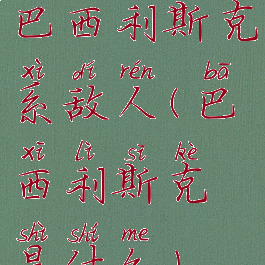 巴西利斯克
xì dí rén bā
系敌人(巴
xī lì sī kè
西利斯克
shì shí me
是什么)